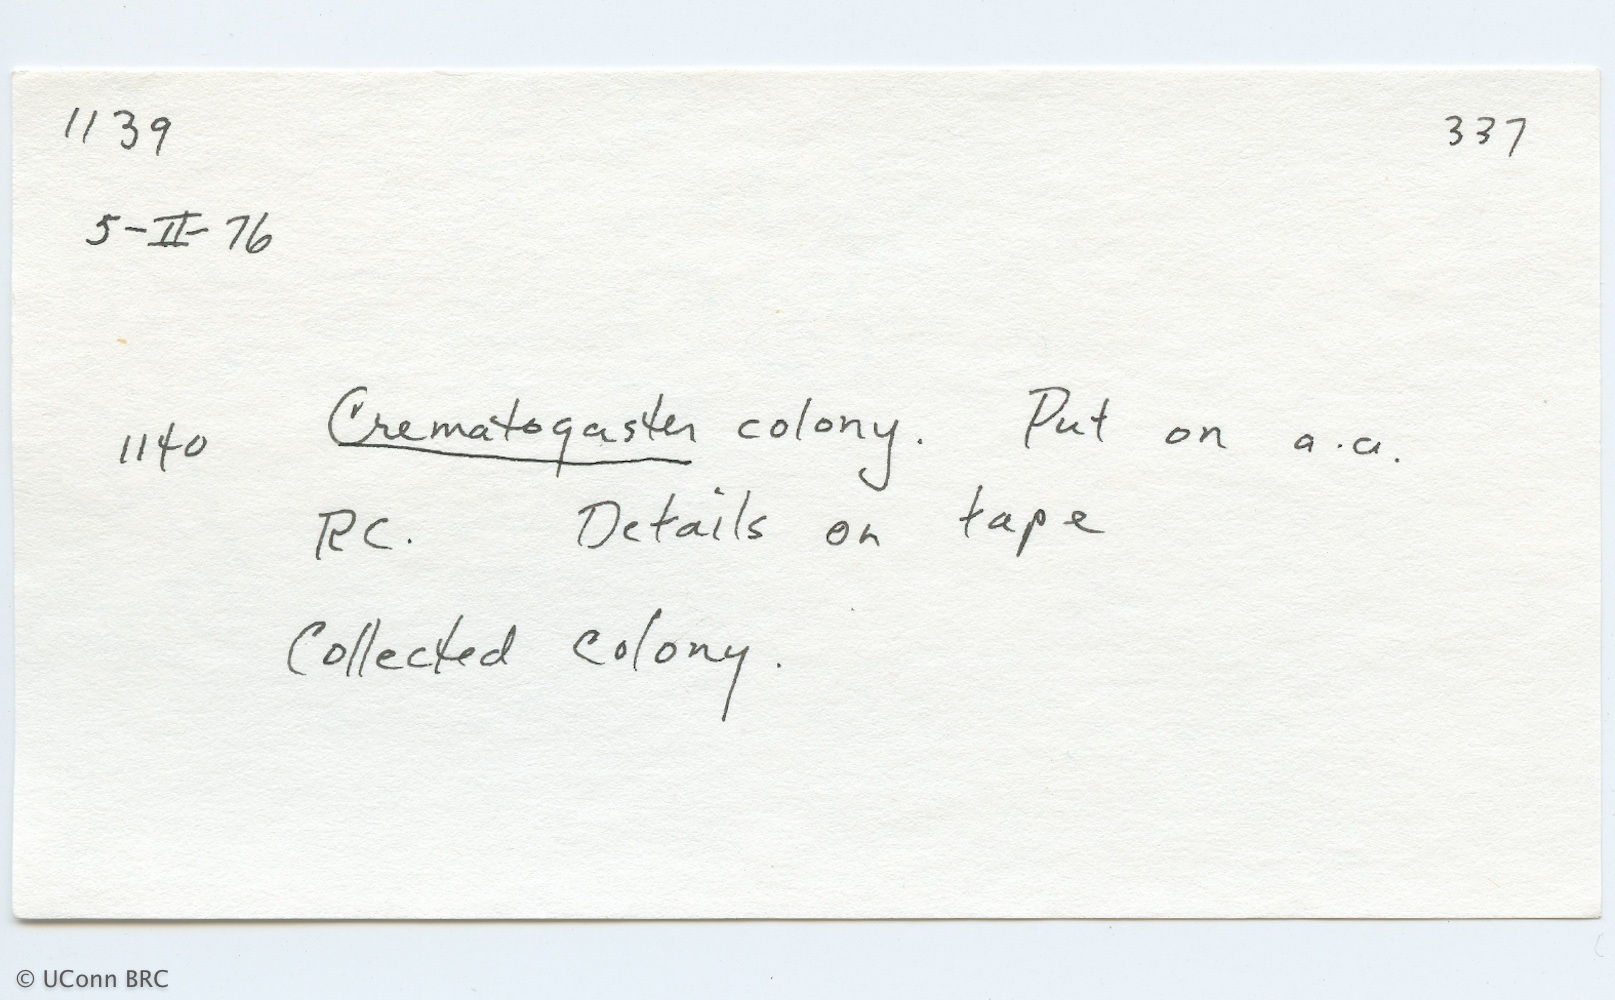 1139 337
5-II-76
1140 Crematogaster colony. Put on a.a.
RC. Details on tape
Collected colony.
© UConn BRC